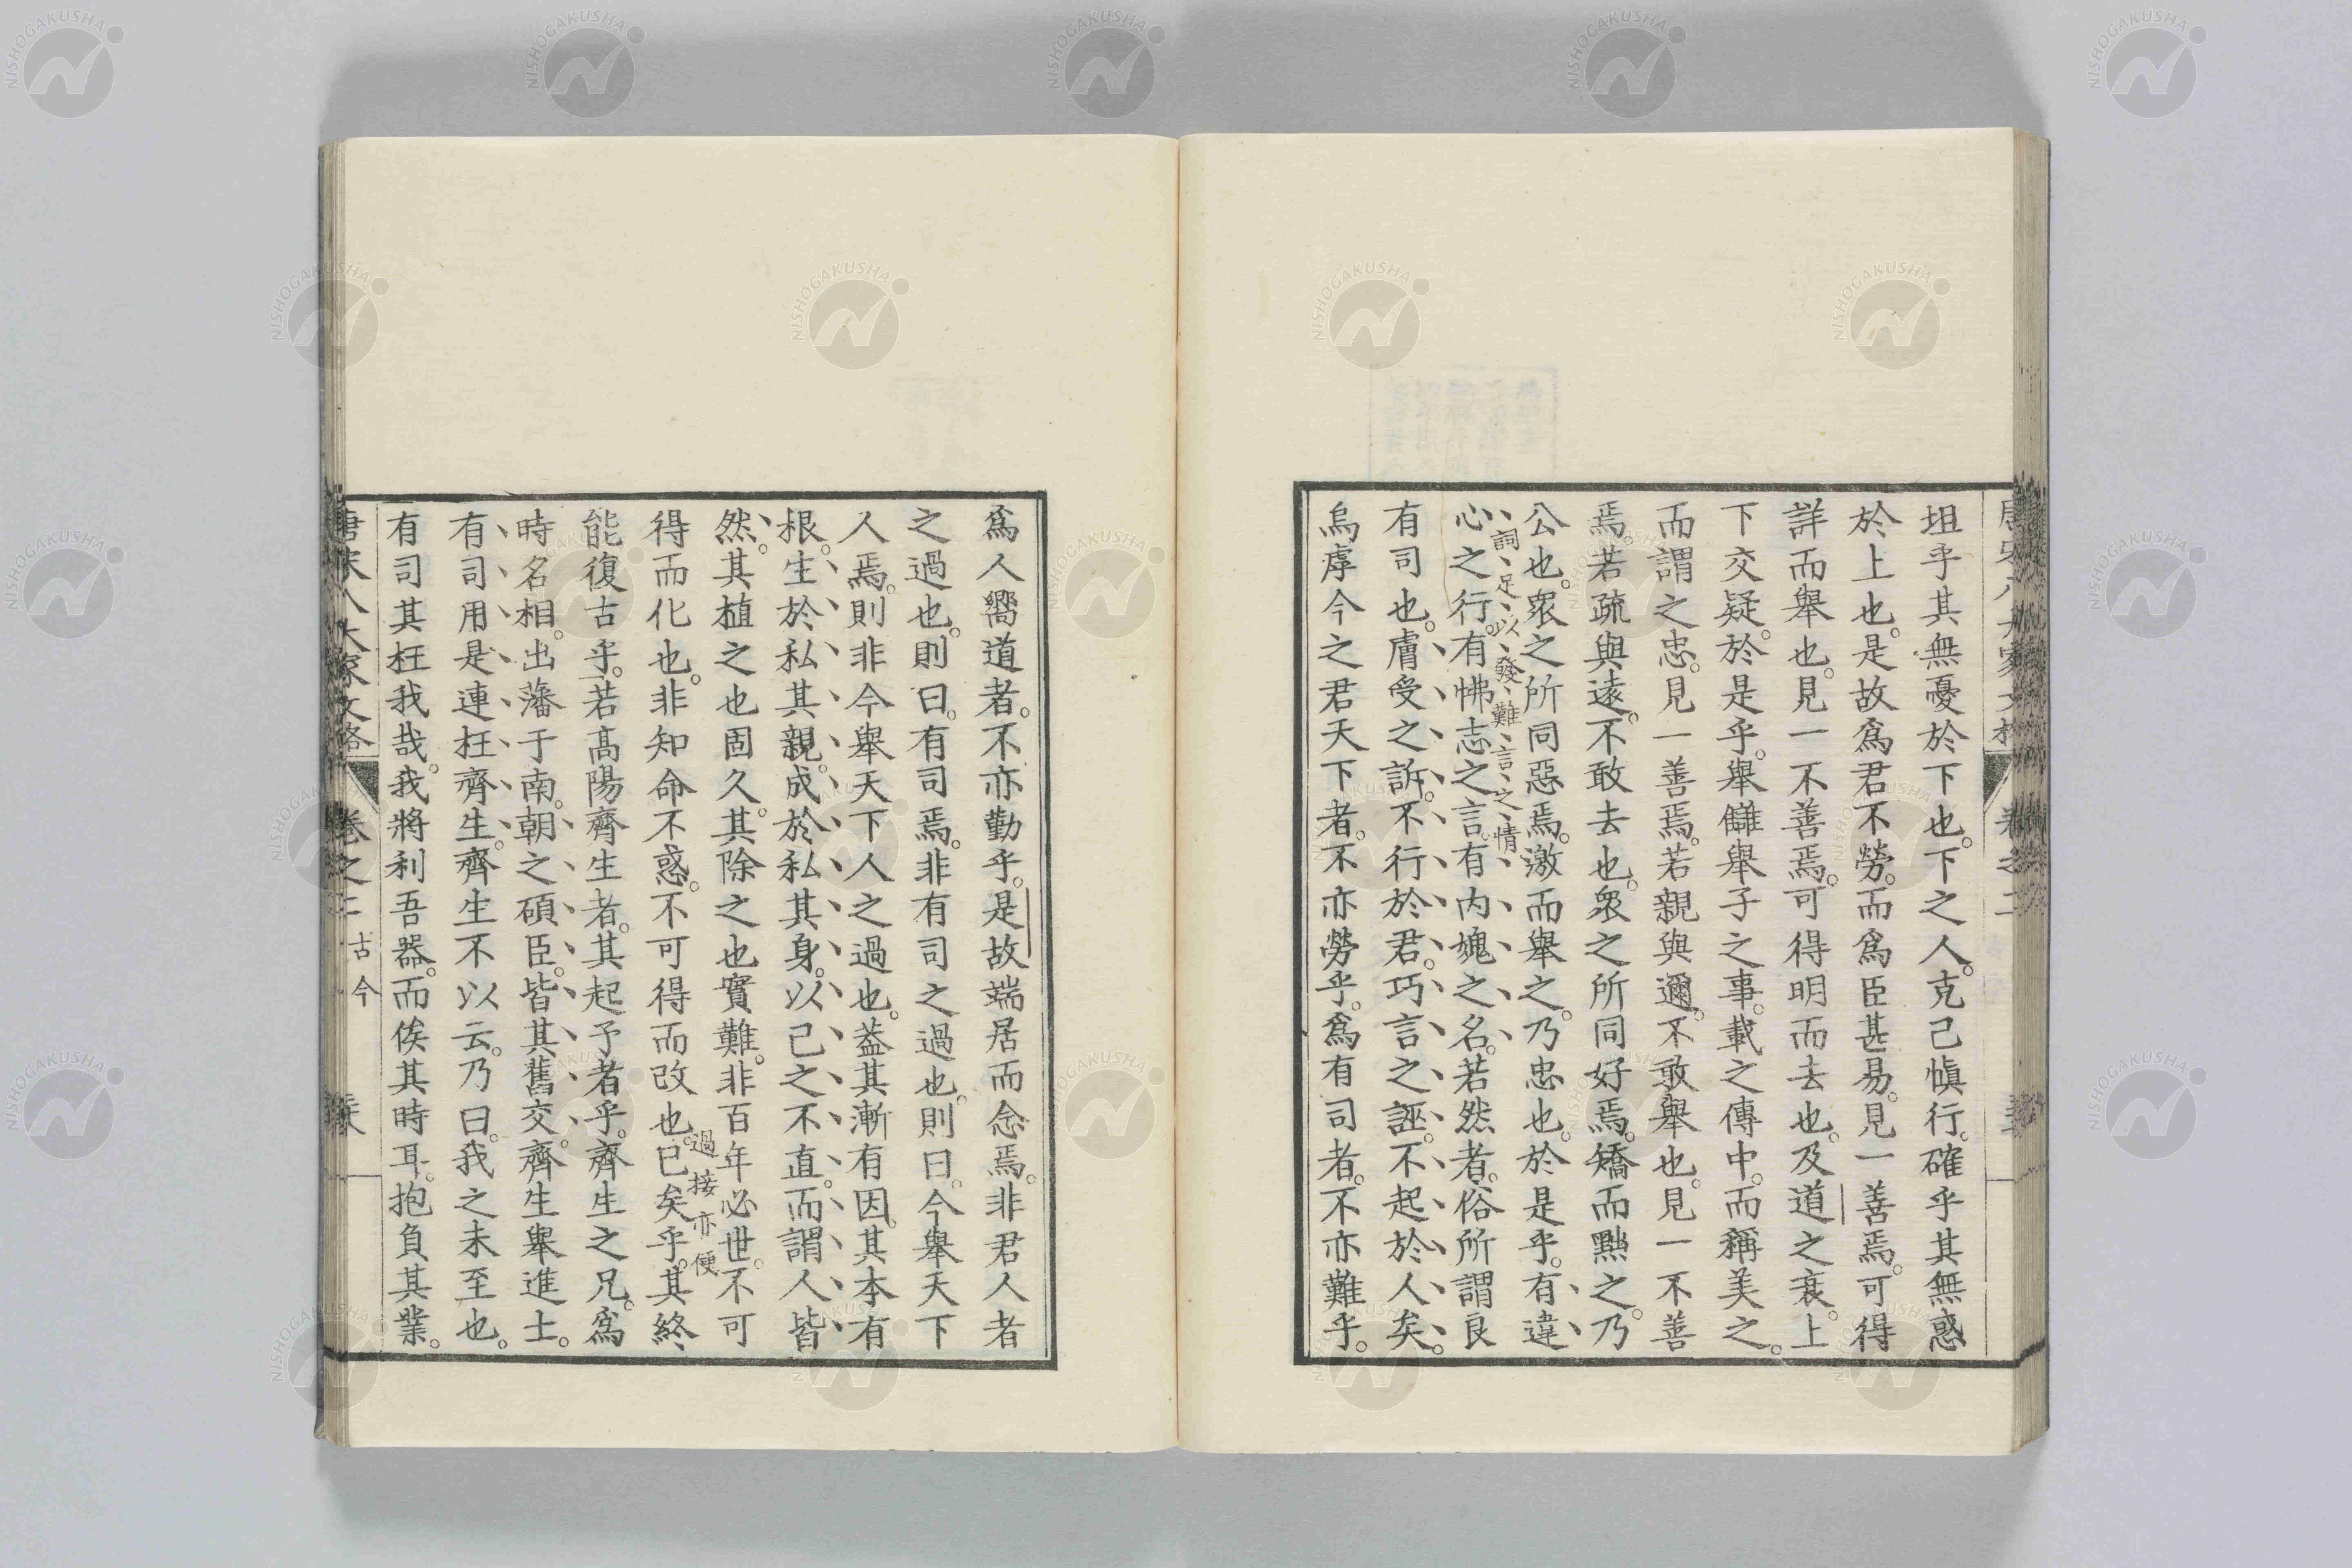 坦乎其無憂於下也。下之人。克己愼行。確乎其無惑
於上也。是故爲君不勞。而爲臣甚易。見一善焉。可得
詳而舉也。見一不善焉。可得明而去也。及道之衰。上
下交疑。於是乎。舉讎舉子之事。載之傳中。而稱美之。
而謂之忠。見一善焉。若親與邇。不敢舉也。見一不善
焉。若疏與遠。不敢去也。衆之所同好焉。矯而黜之。乃
公也。衆之所同惡焉。激而舉之。乃忠也。於是乎。有違
詞足以發難言之情
心之行。有怫志之言。有内媿之名。若然者。俗所謂良
有司也。膚受之訴。不行於君。巧言之誣。不起於人矣。
烏虖今之君天下者。不亦勞乎。爲有司者。不亦難乎。
爲人嚮道者。不亦勤乎。是故端居而念焉。非君人者
之過也。則曰。有司焉。非有司之過也。則曰。今舉天下
人焉。則非今舉天下人之過也。蓋其漸有因。其本有
根。生於私其親。成於私其身。以己之不直。而謂人皆
然。其植之也固久。其除之也實難。非百年必世。不可
得而化也。非知命不惑。不可得而改也。已矣乎。其終
過接亦便
能復古乎。若高陽齊生者。其起予者乎。齊生之兄。爲
時名相。出藩于南。朝之碩臣。皆其舊交。齊生舉進士。
有司用是連枉齊生。齊生不以云。乃曰。我之未至也。
有司其枉我哉。我將利吾器。而俟其時耳。抱負其業。
唐宋八大家文格
卷之二
古今
NISHOGAKUSHA